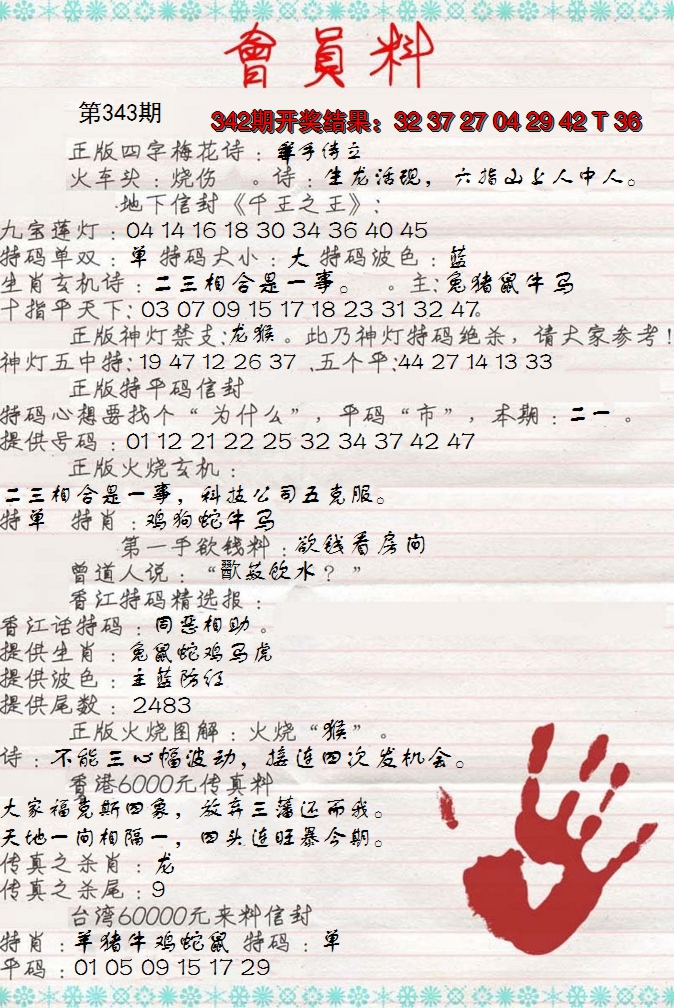 會員料
第343期
342期开奖结果：32 37 27 04 29 42 T 36
正版四字梅花诗：垂手侍立
火车头：烧伤 。诗：生龙活现，六指山上人中人。
地下信封《千王之王》：
九宝莲灯：04 14 16 18 30 34 36 40 45
特码单双：单 特码大小：大 特码波色：蓝
生肖玄机诗：二三相合是一事。 。主：兔猪鼠牛马
十指平天下：03 07 09 15 17 18 23 31 32 47.
正版神灯禁支：龙猴。此乃神灯特码绝杀，请大家参考！
神灯五中特：19 47 12 26 37 .五个平：44 27 14 13 33
正版特平码信封
特码心想要找个“为什么”，平码“市”，本期：二一。
提供号码：01 12 21 22 25 32 34 37 42 47
正版火烧玄机：
二三相合是一事，科技公司五克服。
特单 特肖：鸡狗蛇牛马
第一手欲钱料：欲钱看房间
曾道人说：“歠菽饮水？”
香江特码精选报：
香江话特码：同恶相助。
提供生肖：兔鼠蛇鸡马虎
提供波色：主蓝防红
提供尾数：2483
正版火烧图解：火烧“猴”。
诗：不能三心幅波动，接连四次发机会。
香港6000元传真料
大家福克斯四象，放弃三藩还而我。
天地一向相隔一，四头连旺暴今期。
传真之杀肖：龙
传真之杀尾：9
台湾60000元来料信封
特肖：羊猪牛鸡蛇鼠 特码：单
平码：01 05 09 15 17 29